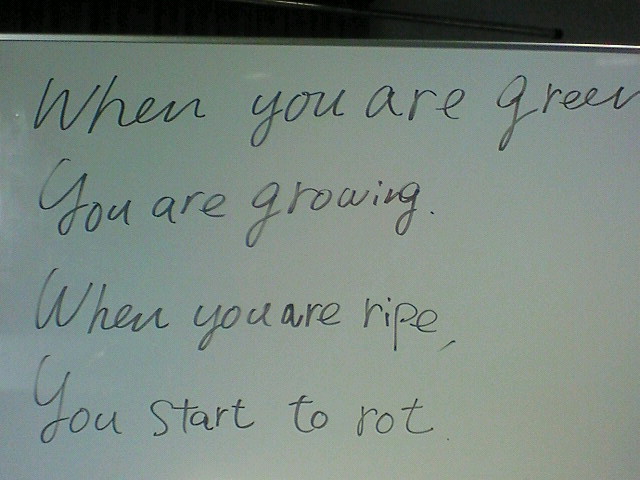 When you are green
You are growing.
When you are ripe,
You start to rot.